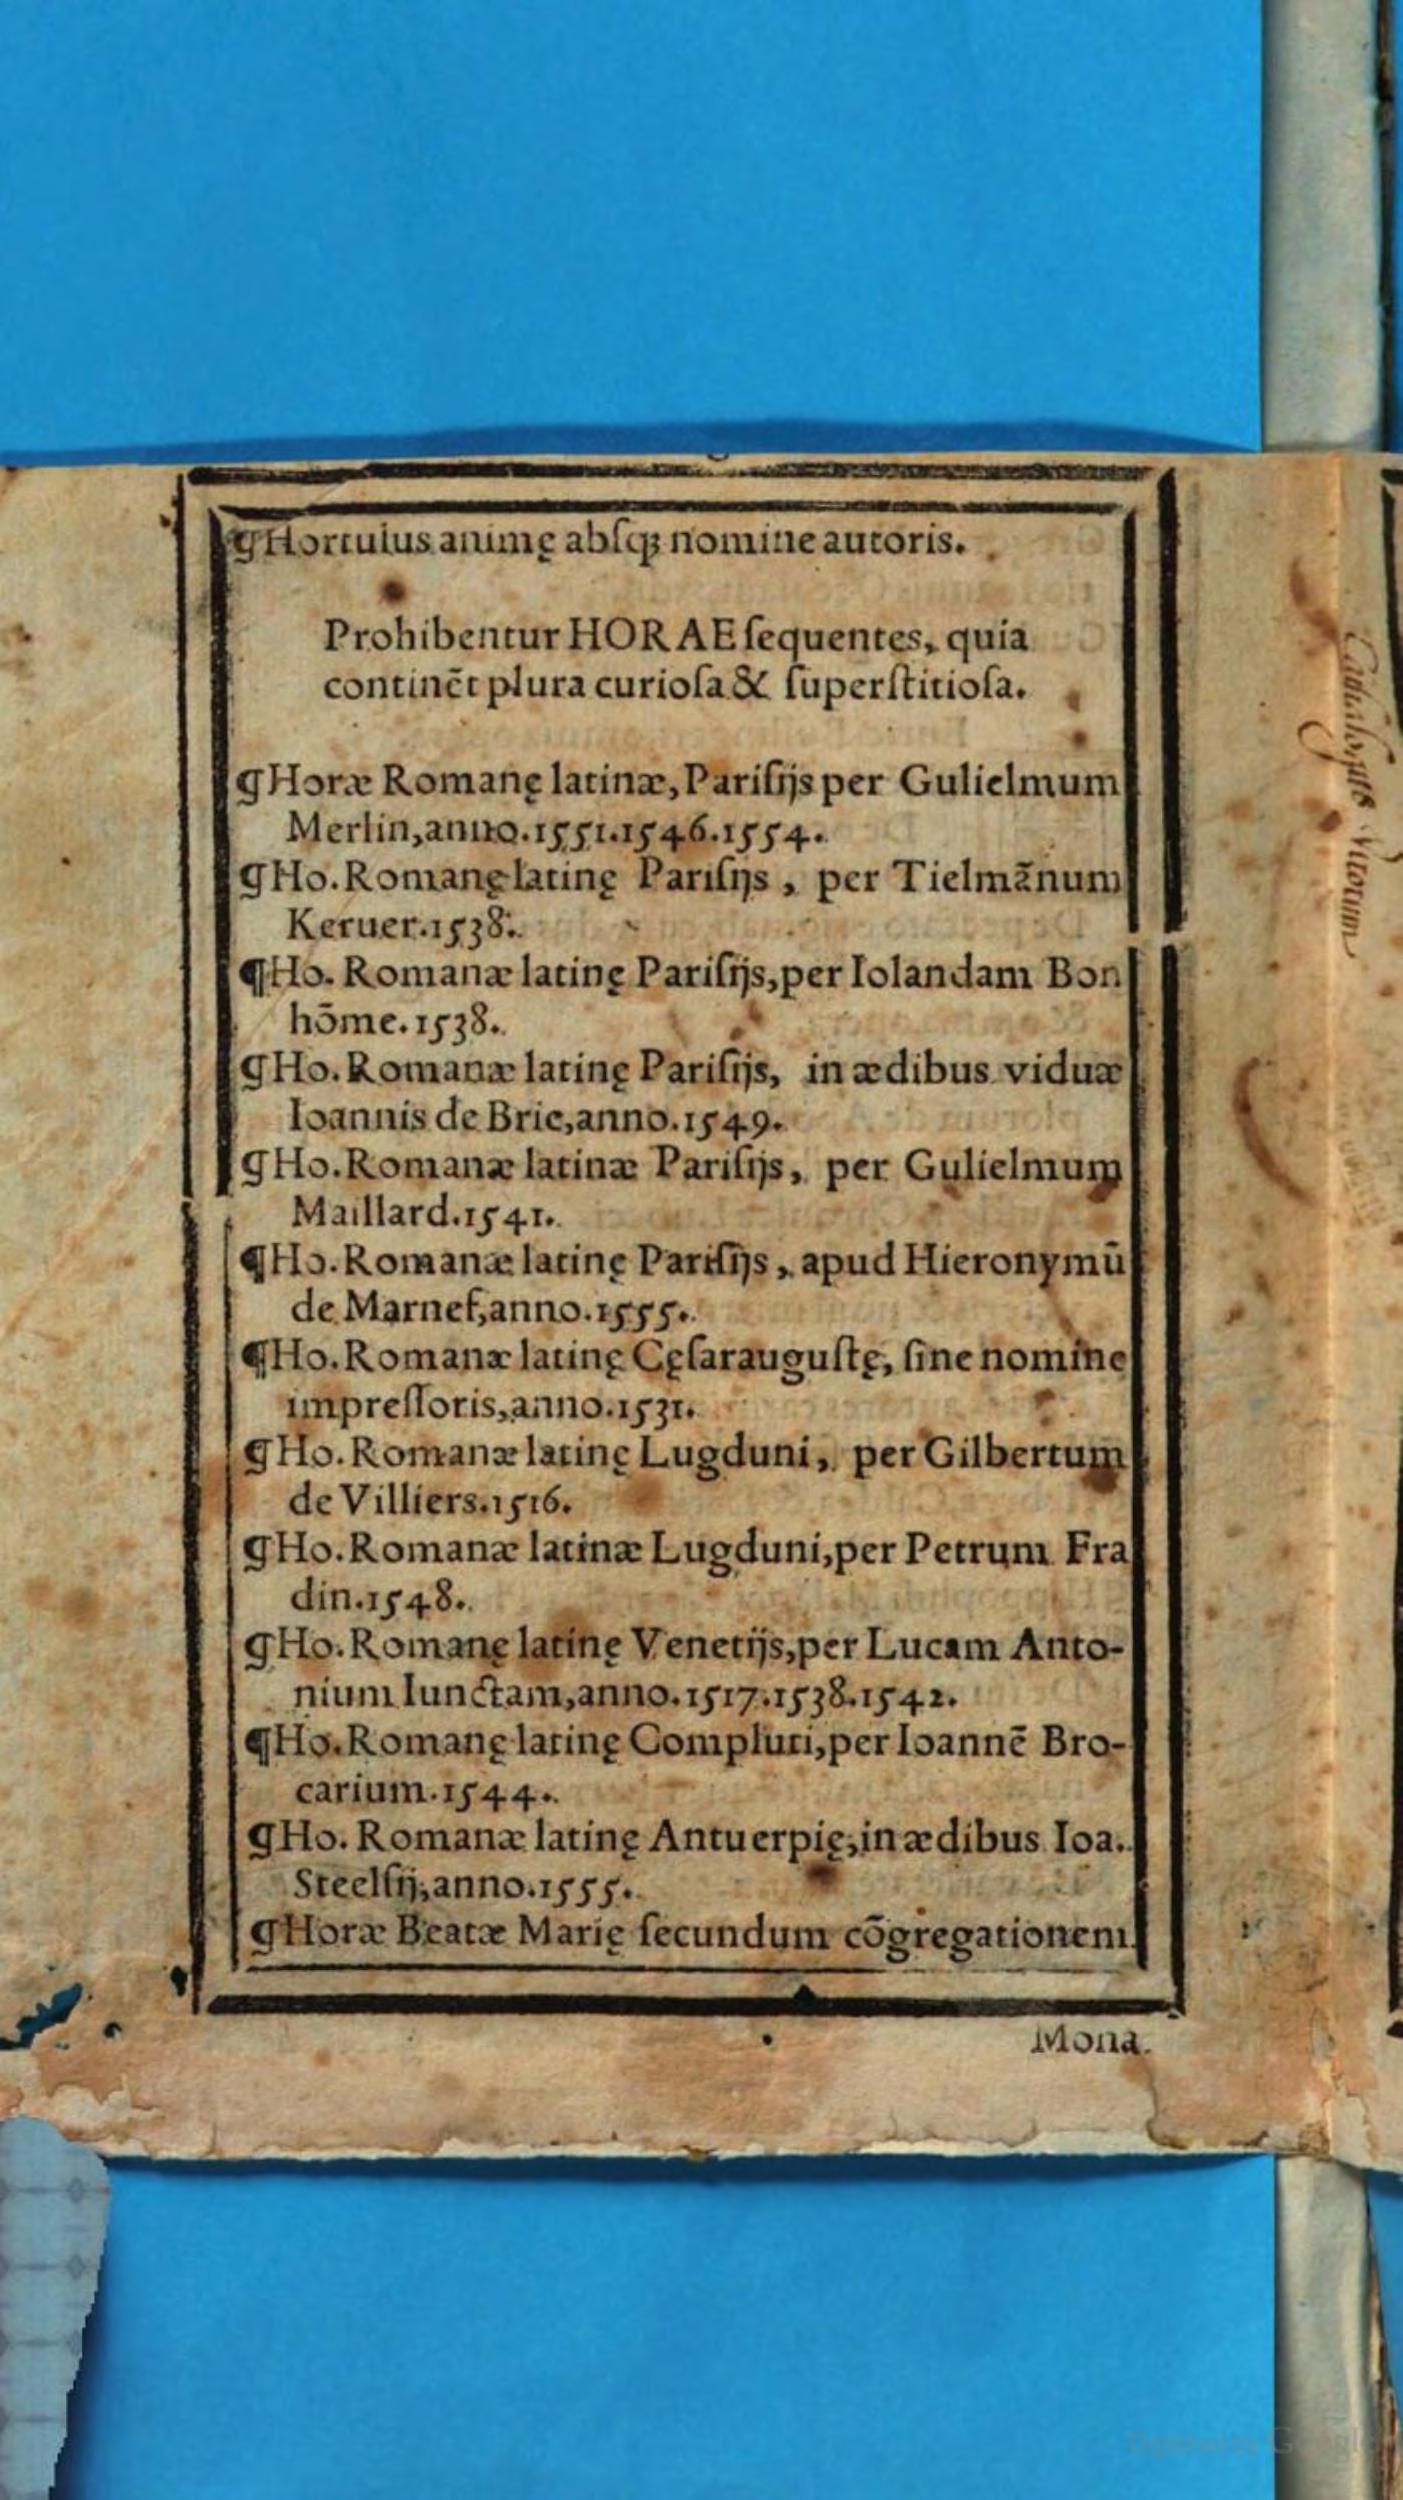 ¶Hortulus animę abſqꝫ nomine autoris.
Prohibentur HORAE ſequentes, quia
continēt plura curioſa & ſuperſtitioſa.
¶Horæ Romanę latinæ, Pariſijs per Gulielmum
Merlin, anno.1551.1546.1554.
¶Ho. Romanę latinę Pariſijs, per Tielmānum
Keruer.1538.
¶Ho. Romanæ latinę Pariſijs, per Iolandam Bon
hōme.1538.
¶Ho. Romanæ latinę Pariſijs, in ædibus viduæ
Ioannis de Brie, anno.1549.
¶Ho. Romanæ latinæ Pariſijs, per Gulielmum
Maillard.1541.
¶Ho. Romanæ latinę Pariſijs, apud Hieronymū
de Marnef, anno.1555.
¶Ho. Romanæ latinę Cęſarauguſtę, ſine nomine
impreſſoris, anno.1531.
¶Ho. Romanæ latinę Lugduni, per Gilbertum
de Villiers.1516.
¶Ho. Romanæ latinæ Lugduni, per Petrum Fra
din.1548.
¶Ho. Romanę latinę Venetijs, per Lucam Anto-
nium Iunctam, anno.1517.1538.1542.
¶Ho. Romanę latinę Compluti, per Ioannē Bro-
carium.1544.
¶Ho. Romanæ latinę Antuerpię, in ædibus Ioa.
Steelſij, anno.1555.
¶Horæ Beatæ Marię ſecundum cōgregationem
Mona.
Digitized by Google